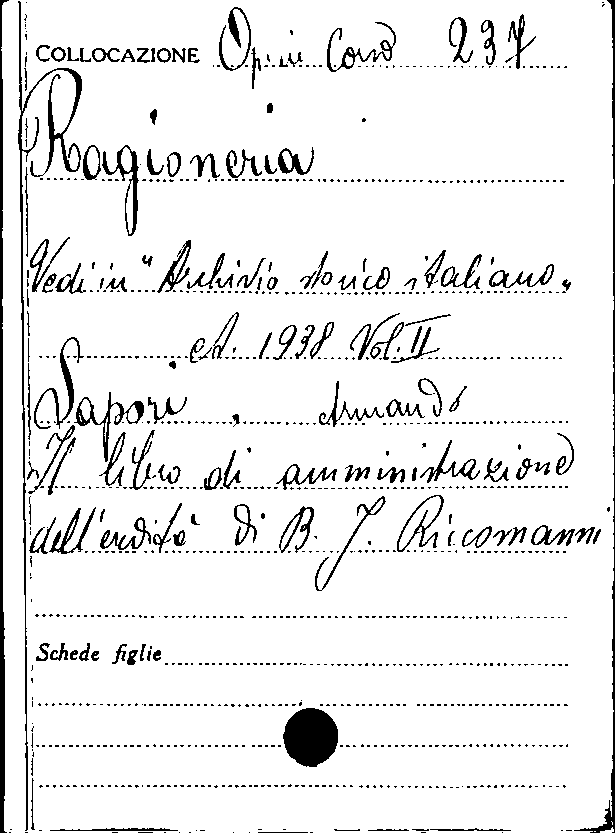 COLLOCAZIONE Op. in Corso 237
Ragioneria
Vedi in "Archivio storico italiano"
A. 1938 Vol. II
Sapori, Armando
Il libro di amministrazione
dell'eredità di B. J. Riccomanni
Schede figlie